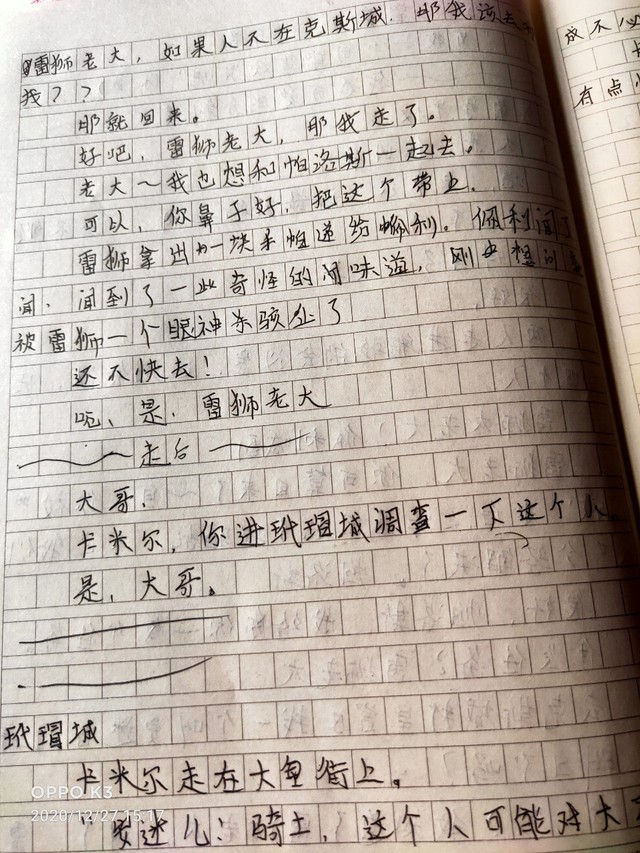 雷狮老大，如果人不在克斯城．那我该去
找？？
那就回来。
好吧，雷狮老大，那我走了。
老大～我也想和帕洛斯一起去。
可以，你鼻子好，把这个带上．
雷狮拿出一块手帕递给佩利。佩利闻了
闻、闻到了一些奇怪的味道，刚想问
被雷狮一个眼神杀骇住了
还不快去！
呃、是．雷狮老大
走后
大哥．
卡米尔，你进玳瑁城调查一下这个人
是，大哥。
玳瑁城
卡米尔走在大街上。
"安迷儿！骑士，这个人可能对大
成不
有点
OPPO K3
2020/12/27 15:17